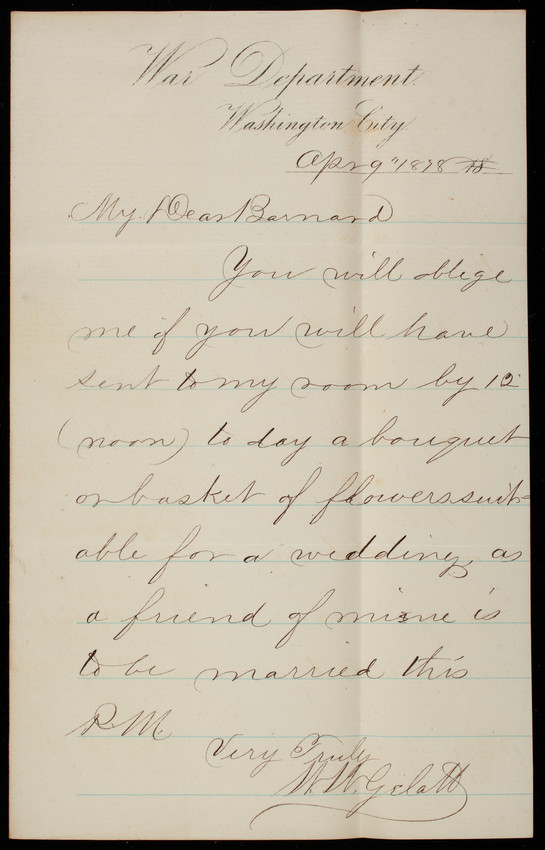 War Department.
Washington City.
Apr 9" 1878
My Dear Barnard
You will oblege
me if you will have
sent to my room by 12
(noon) to day a bouquet
or basket of flowers suit-
able for a wedding, as
a friend of mine is
to be married this
P.M.
Very Truly
W.W. Gelatt